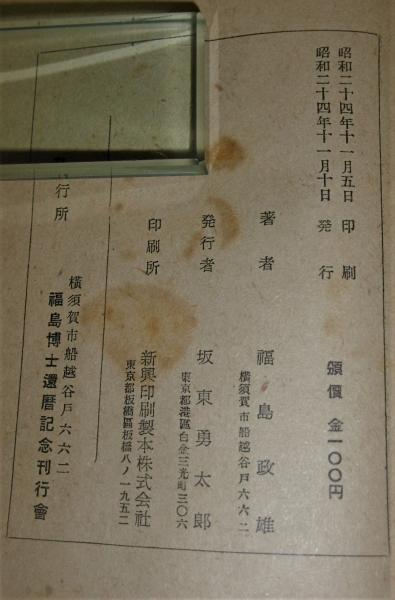 昭和二十四年十一月五日 印刷
昭和二十四年十一月十日 発行
頒價 金一〇〇円
著者 福島政雄
横須賀市船越谷戸六六二
発行者 坂東勇太郎
東京都港區白金三光町三〇六
印刷所 新興印刷製本株式会社
東京都板橋區板橋八ノ一九五二
行所
横須賀市船越谷戸六六二
福島博士還暦記念刊行會